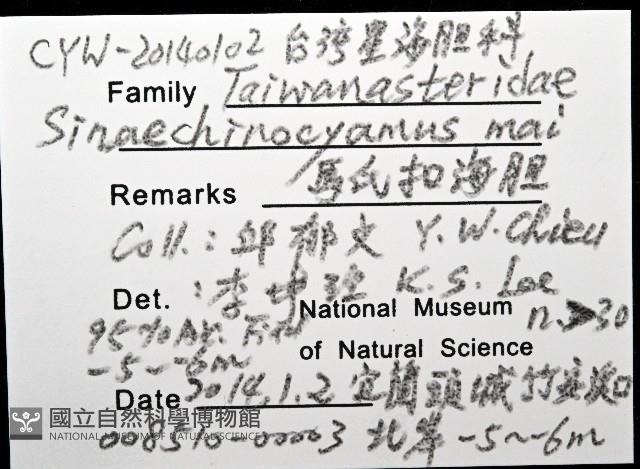 CYW-20140102 台湾星海胆科
Family Taiwanasteridae
Sinaechinocyamus mai
Remarks 馬氏扣海胆
Coll.: 邱郁文 Y.W.Chiu
Det. : 李坤瑄 K.S. Lee
National Museum n>30
95%
of Natural Science
-5~-6m
Date 2014.1.2 宜蘭頭城竹安溪口
國立自然科學博物館
NATIONAL MUSEUM OF NATURAL SCIENCE
008510-00003 北岸 -5~-6m